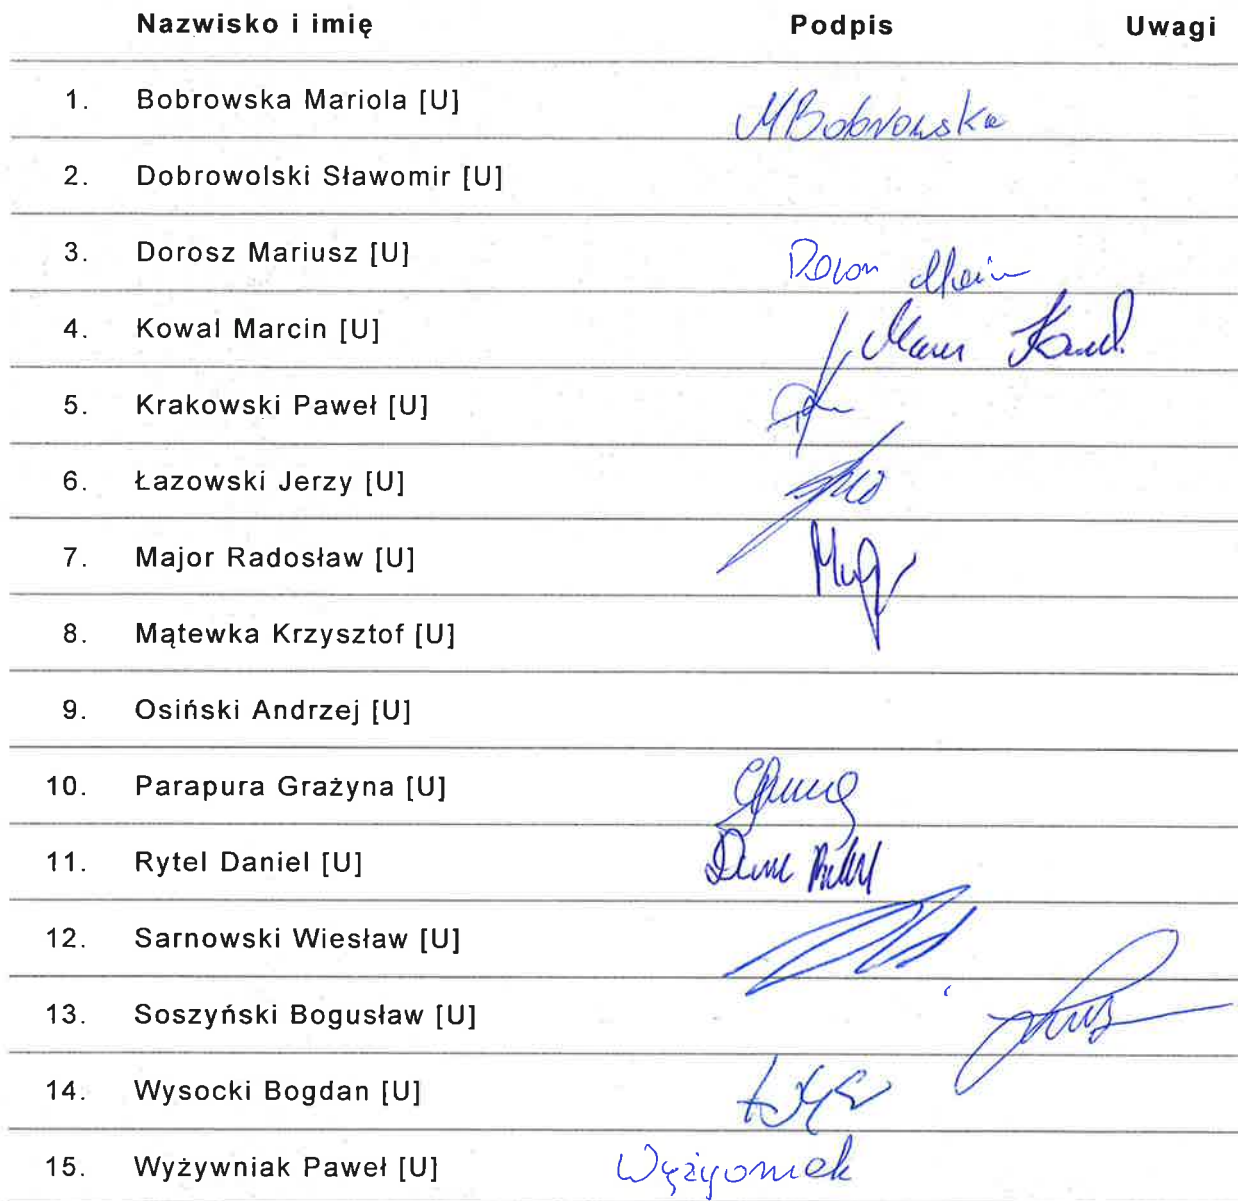 Nazwisko i imię Podpis Uwagi
1. Bobrowska Mariola [U] MBobrowska
2. Dobrowolski Sławomir [U]
3. Dorosz Mariusz [U]
4. Kowal Marcin [U]
5. Krakowski Paweł [U]
6. Łazowski Jerzy [U]
7. Major Radosław [U]
8. Mątewka Krzysztof [U]
9. Osiński Andrzej [U]
10. Parapura Grażyna [U]
11. Rytel Daniel [U]
12. Sarnowski Wiesław [U]
13. Soszyński Bogusław [U]
14. Wysocki Bogdan [U]
15. Wyżywniak Paweł [U]